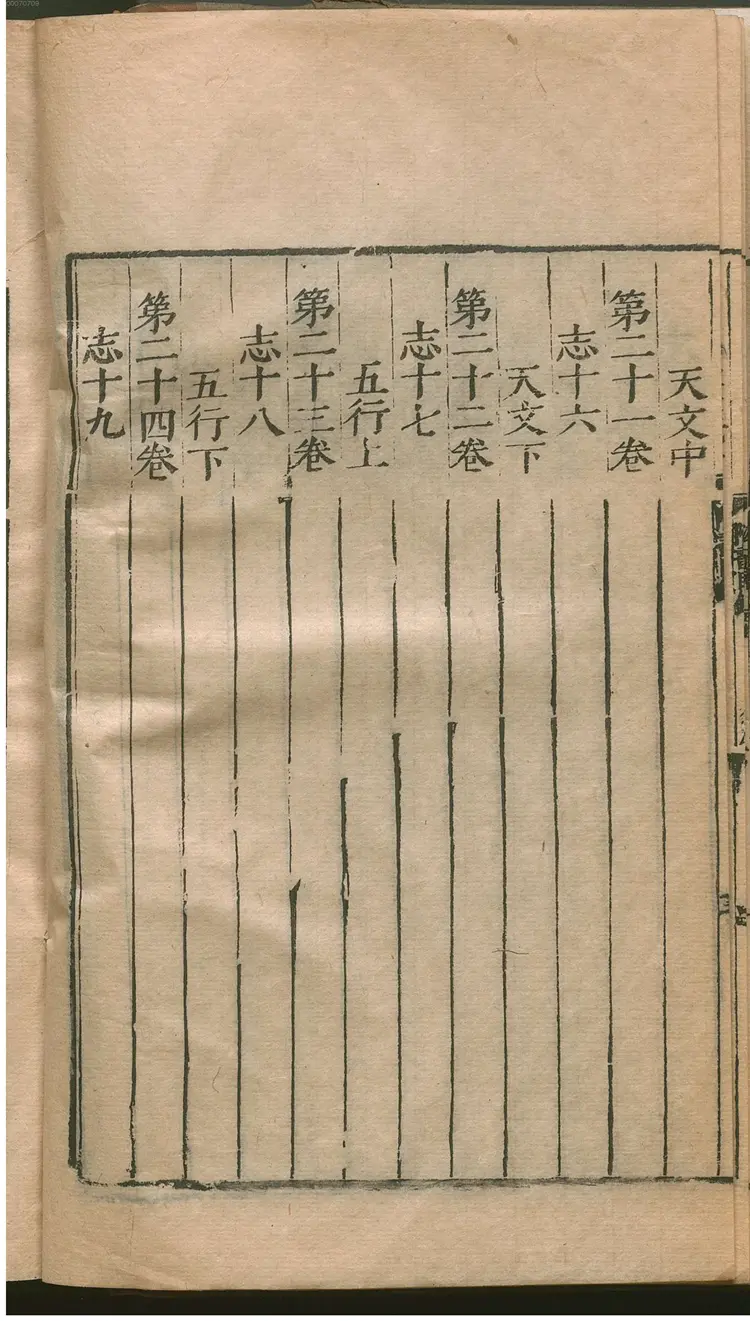 天文中
第二十一卷
志十六
天文下
第二十二卷
志十七
五行上
第二十三卷
志十八
五行下
第二十四卷
志十九
00070709